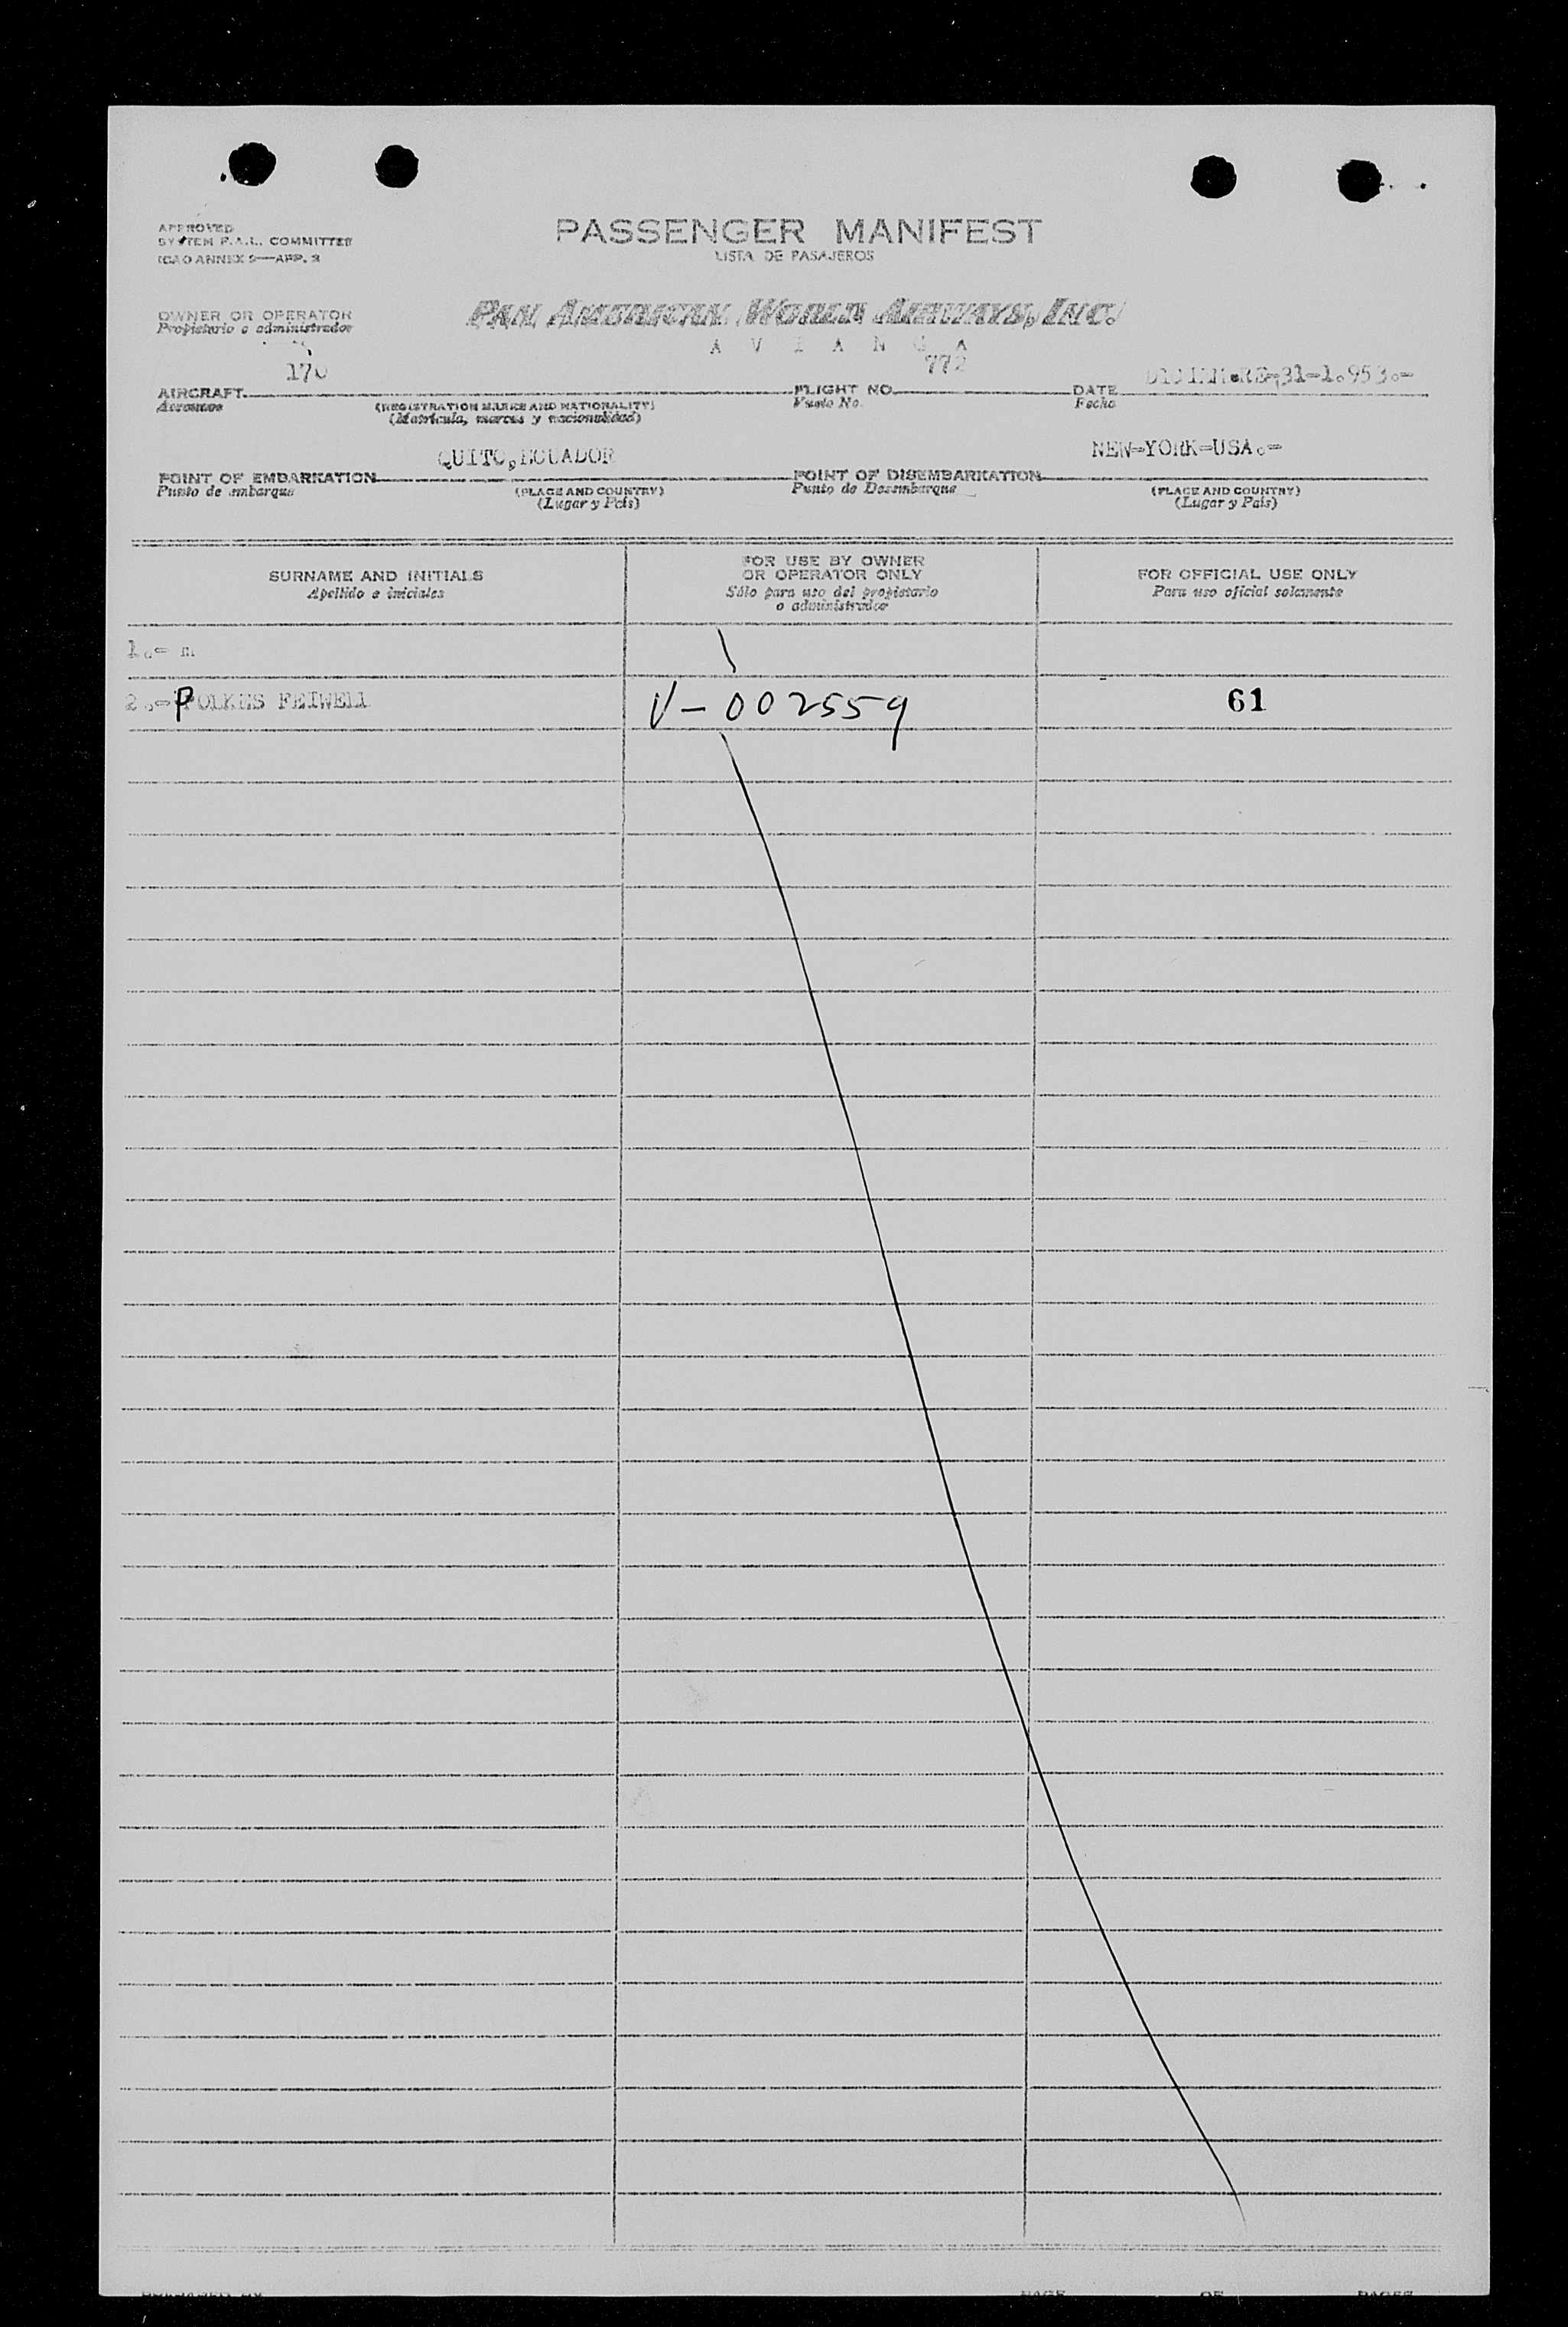 APPROVED
SYSTEM F.A.L. COMMITTEE
ICAO ANNEX 9—APP. 3
PASSENGER MANIFEST
LISTA DE PASAJEROS
OWNER OR OPERATOR
Propietario o administrador
PAN AMERICAN WORLD AIRWAYS, INC.
A V I A N C A
AIRCRAFT 170
Aeronave
(REGISTRATION MARKS AND NATIONALITY)
(Matrícula, marcas y nacionalidad)
FLIGHT NO. 772
Vuelo No.
DATE DICIEMBRE-31-1.953.-
Fecha
POINT OF EMBARKATION QUITO,ECUADOR
Punto de embarque
(PLACE AND COUNTRY)
(Lugar y País)
POINT OF DISEMBARKATION NEW-YORK-USA.-
Punto de Desembarque
(PLACE AND COUNTRY)
(Lugar y País)
SURNAME AND INITIALS
Apellido e iniciales
FOR USE BY OWNER
OR OPERATOR ONLY
Sólo para uso del propietario
o administrador
FOR OFFICIAL USE ONLY
Para uso oficial solamente
1.- m
2.- POLKES FEIWELL V-002559 61
PAGE OF PAGES